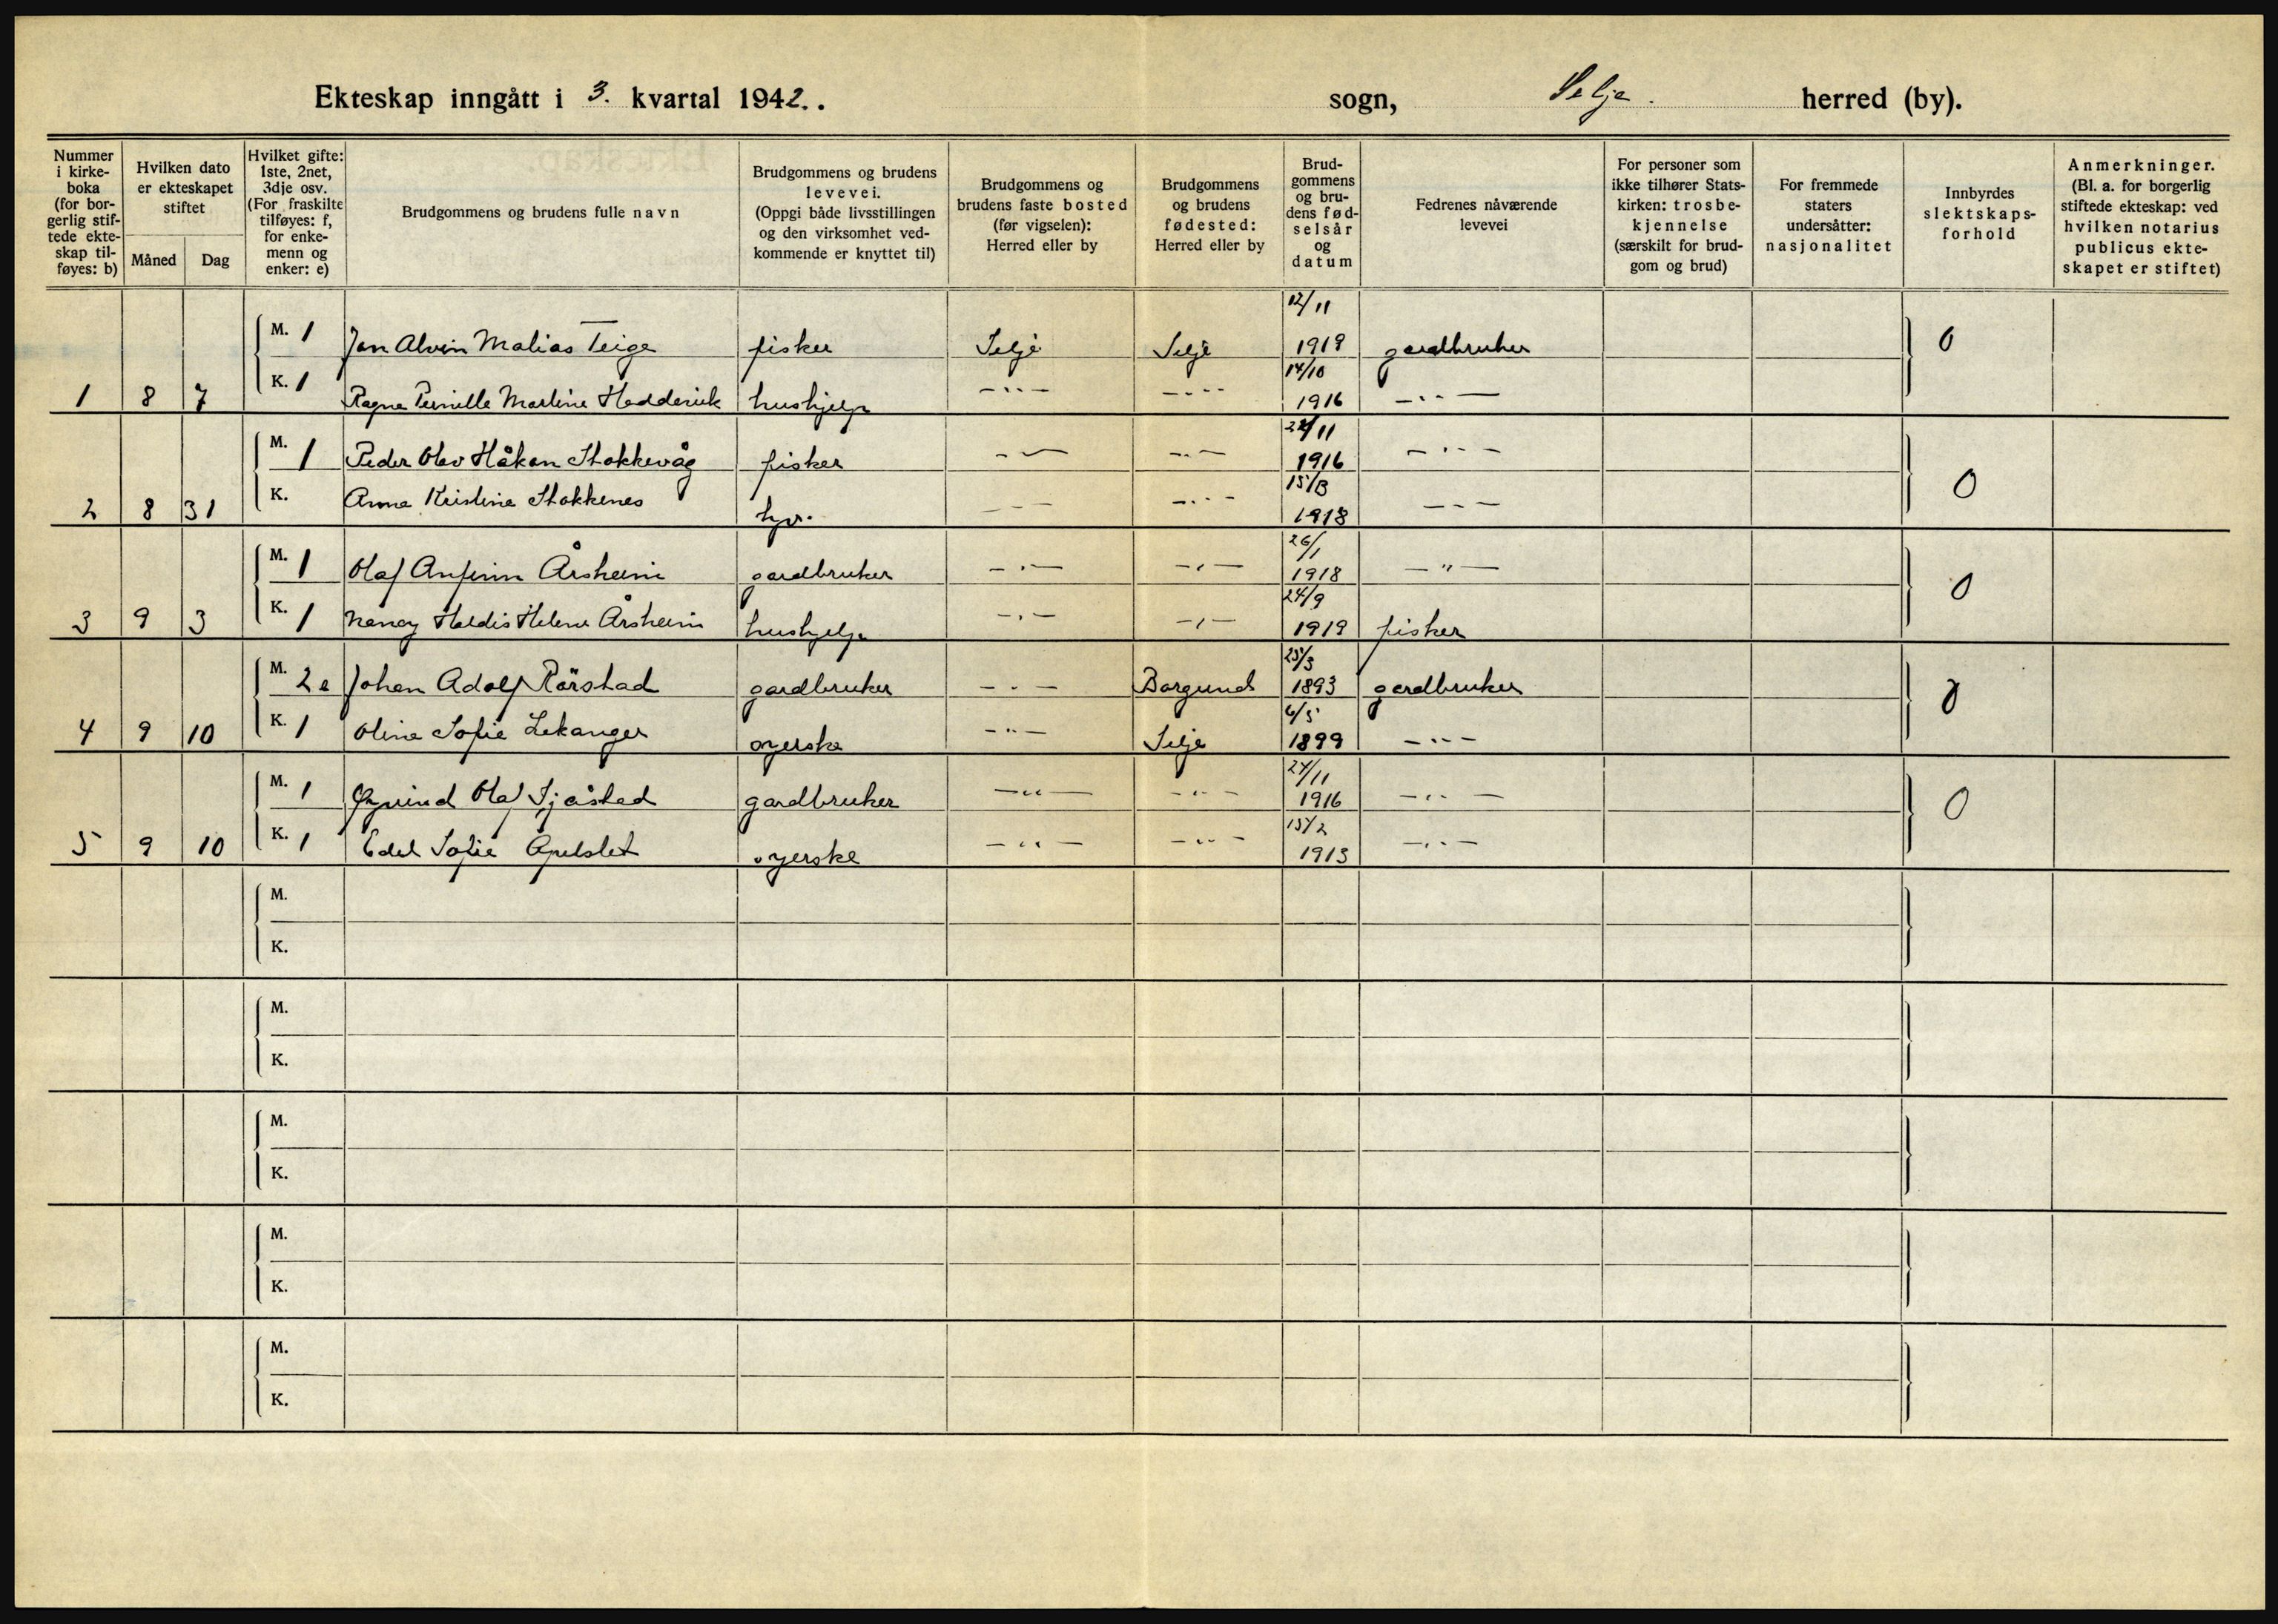 Ekteskap inngått i 3. kvartal 1942. . sogn, Selje. herred (by).
Nummer i kirke- boka (for bor- gerlig stif- tede ekte- skap til- føyes: b)
Hvilken dato er ekteskapet stiftet
Måned Dag
Hvilket gifte: 1ste, 2net, 3dje osv. (For fraskilte tilføyes: f, for enke- menn og enker: e)
Brudgommens og brudens fulle navn
Brudgommens og brudens levevei. (Oppgi både livsstillingen og den virksomhet ved- kommende er knyttet til)
Brudgommens og brudens faste bosted (før vigselen): Herred eller by
Brudgommens og brudens fødested: Herred eller by
Brud- gommens og bru- dens fød- selsår og datum
Fedrenes nåværende levevei
For personer som ikke tilhører Stats- kirken: trosbe- kjennelse (særskilt for brud- gom og brud)
For fremmede staters undersåtter: nasjonalitet
Innbyrdes slektskaps- forhold
Anmerkninger. (Bl. a. for borgerlig stiftede ekteskap: ved hvilken notarius publicus ekte- skapet er stiftet)
12/11
M. 1 Jon Alvin Malias Teige fisker Selje Selje 1919 gardbruker 0
14/10
1 8 7 K. 1 Ragna Pernille Martine Hedderuik hushjelp -"- -"- 1916 -"-
22/11
M. 1 Peder Olav Håkon Stokkevåg fisker -"- -"- 1916 -"- 0
2 8 31 K. Anna Kristine Stokkenes -"- -"- 1918 -"-
26/1
M. 1 Olaf Anfinn Årsheim gardbruker -"- -"- 1918 -"- 0
24/9
3 9 3 K. 1 Nancy Haldis Helene Årsheim hushjelp -"- -"- 1919 fisker
25/3
M. 2 e Johan Adolf Rörstad gardbruker -"- Borgund 1893 gardbruker 0
6/5
4 9 10 K. 1 Oline Sofie Lekanger syerske -"- Selje 1899 -"-
24/11
M. 1 Øyvind Olaf Sjåstad gardbruker -"- -"- 1916 -"- 0
15/2
5 9 10 K. 1 Edel Sofie Apelset syerske -"- -"- 1913 -"-
M.
K.
M.
K.
M.
K.
M.
K.
M.
K.